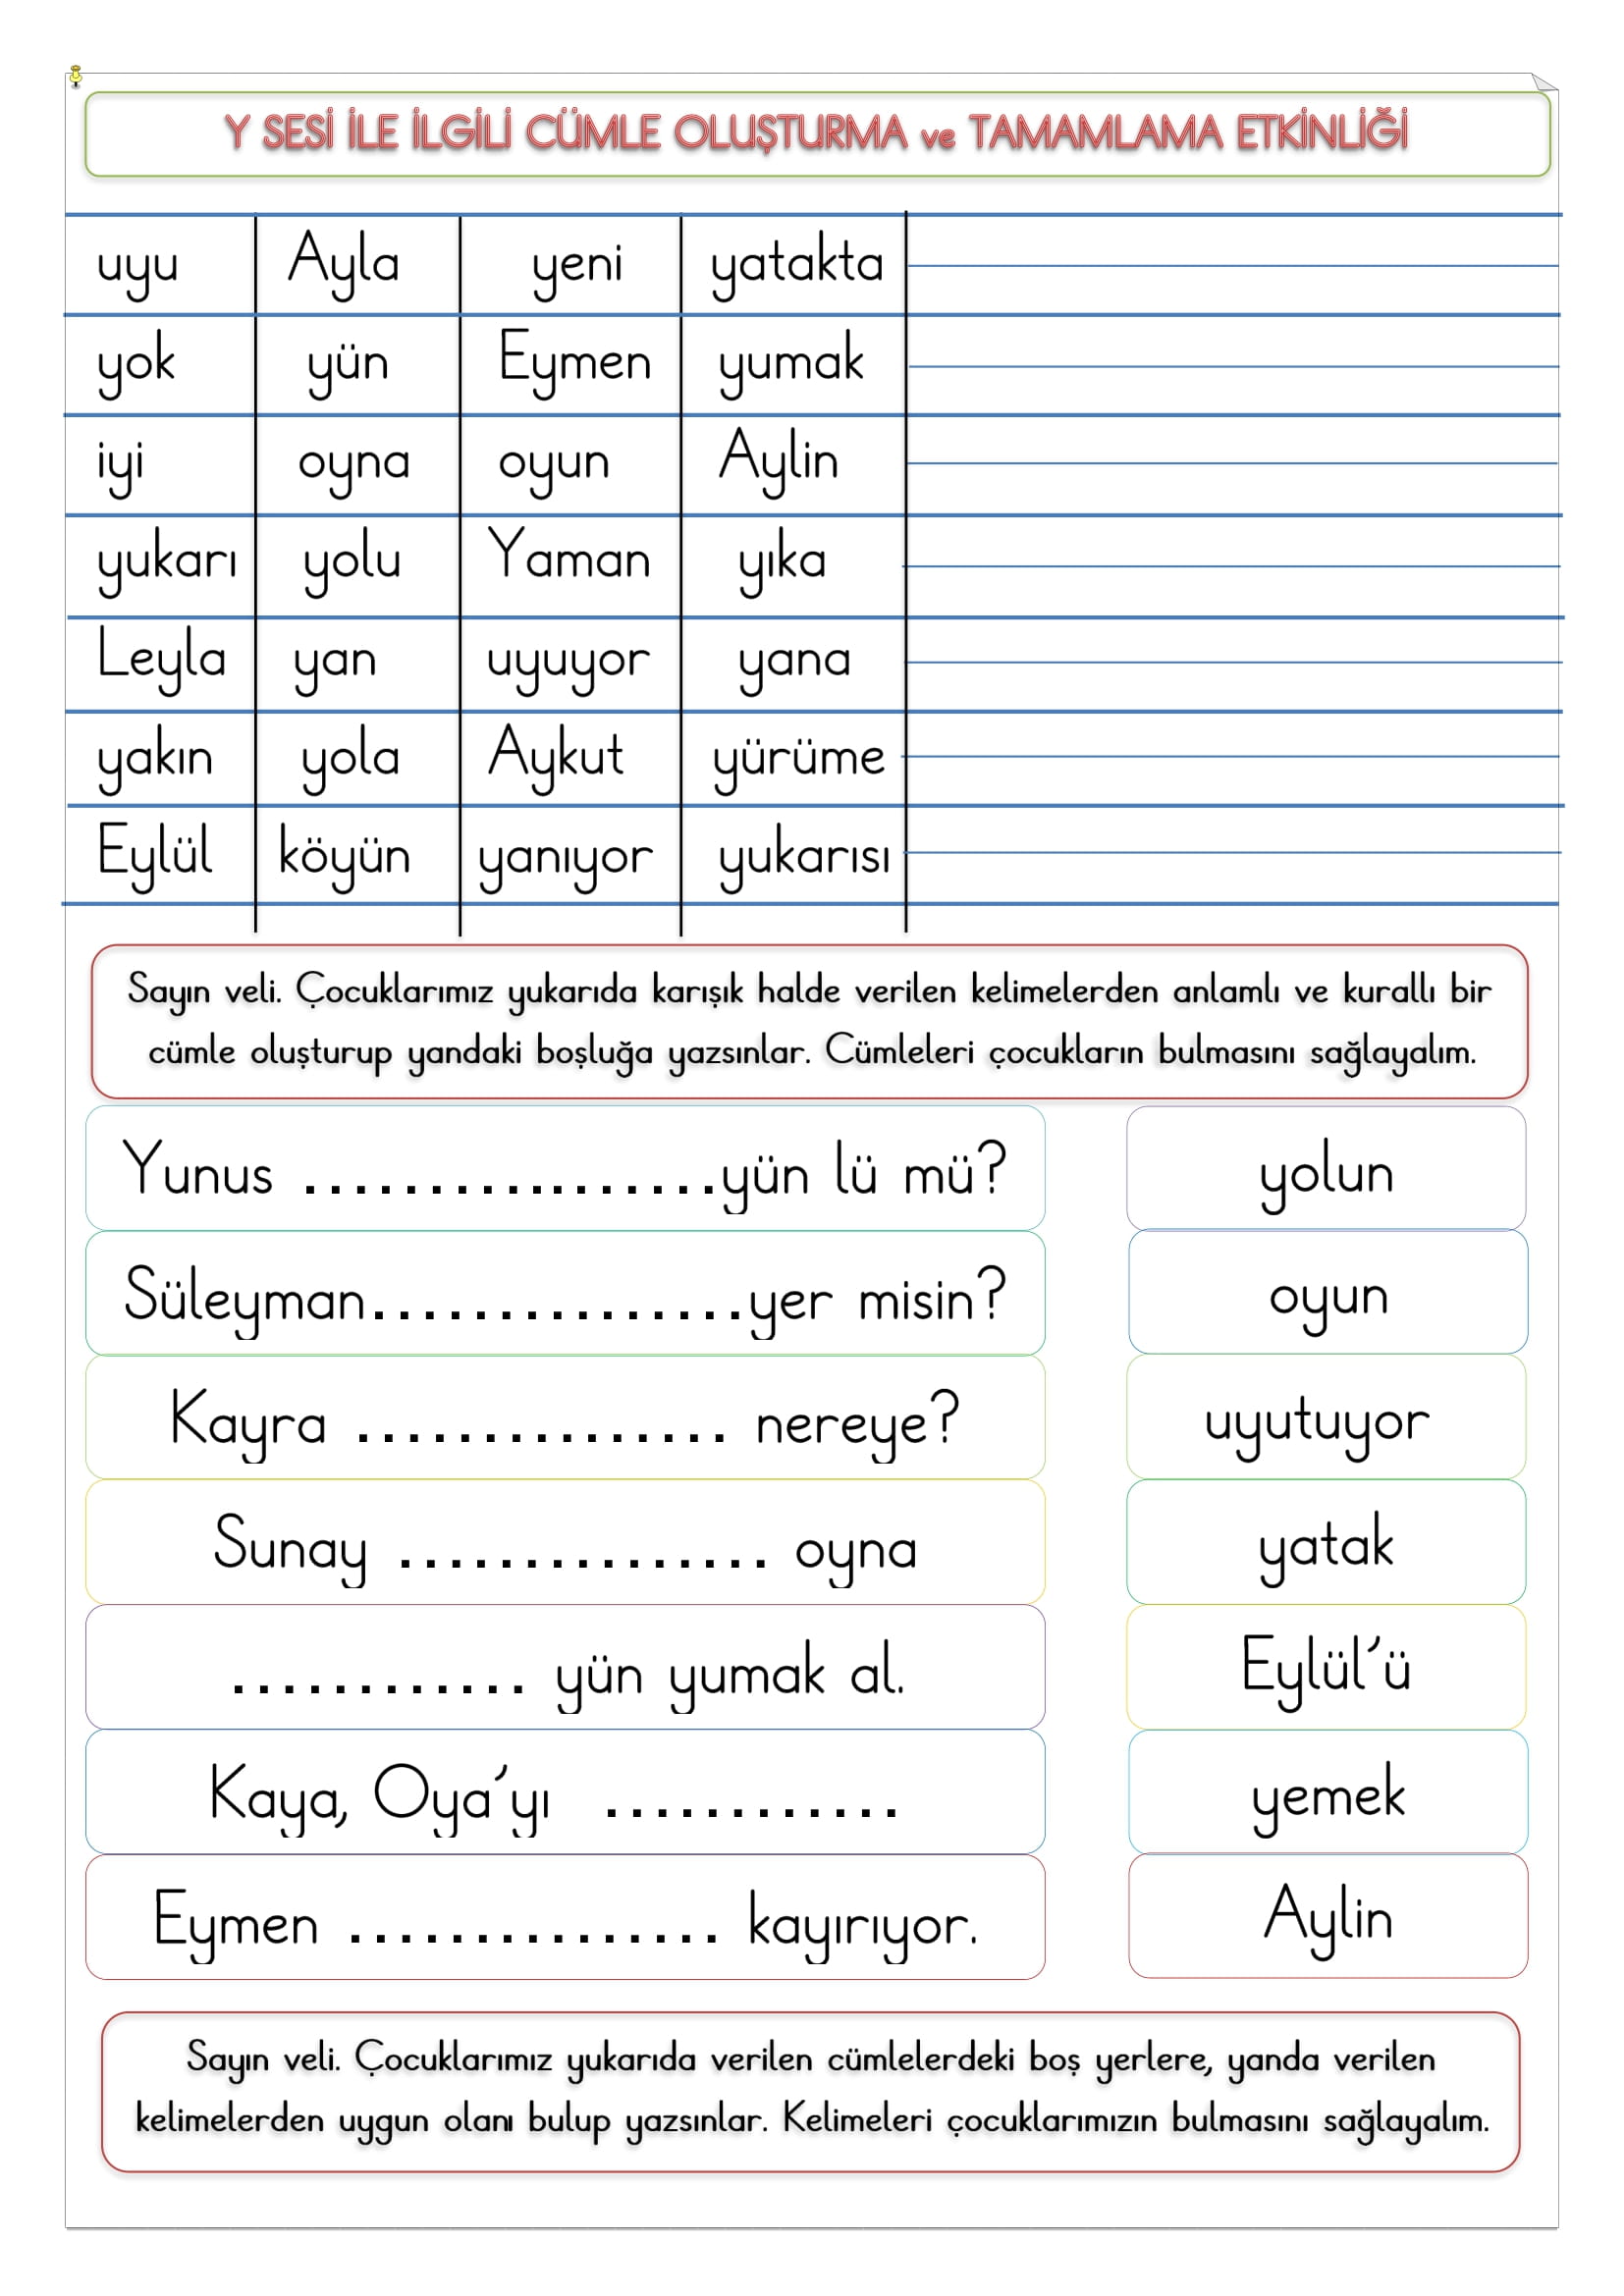 Y SESİ İLE İLGİLİ CÜMLE OLUŞTURMA ve TAMAMLAMA ETKİNLİĞİ
uyu Ayla yeni yatakta
yok yün Eymen yumak
iyi oyna oyun Aylin
yukarı yolu Yaman yıka
Leyla yan uyuyor yana
yakın yola Aykut yürüme
Eylül köyün yanıyor yukarısı
Sayın veli. Çocuklarımız yukarıda karışık halde verilen kelimelerden anlamlı ve kurallı bir
cümle oluşturup yandaki boşluğa yazsınlar. Cümleleri çocukların bulmasını sağlayalım.
Yunus .................yün lü mü? yolun
Süleyman...............yer misin? oyun
Kayra ............... nereye? uyutuyor
Sunay ............... oyna yatak
............ yün yumak al. Eylül’ü
Kaya, Oya’yı ............ yemek
Eymen ............... kayırıyor. Aylin
Sayın veli. Çocuklarımız yukarıda verilen cümlelerdeki boş yerlere, yanda verilen
kelimelerden uygun olanı bulup yazsınlar. Kelimeleri çocuklarımızın bulmasını sağlayalım.